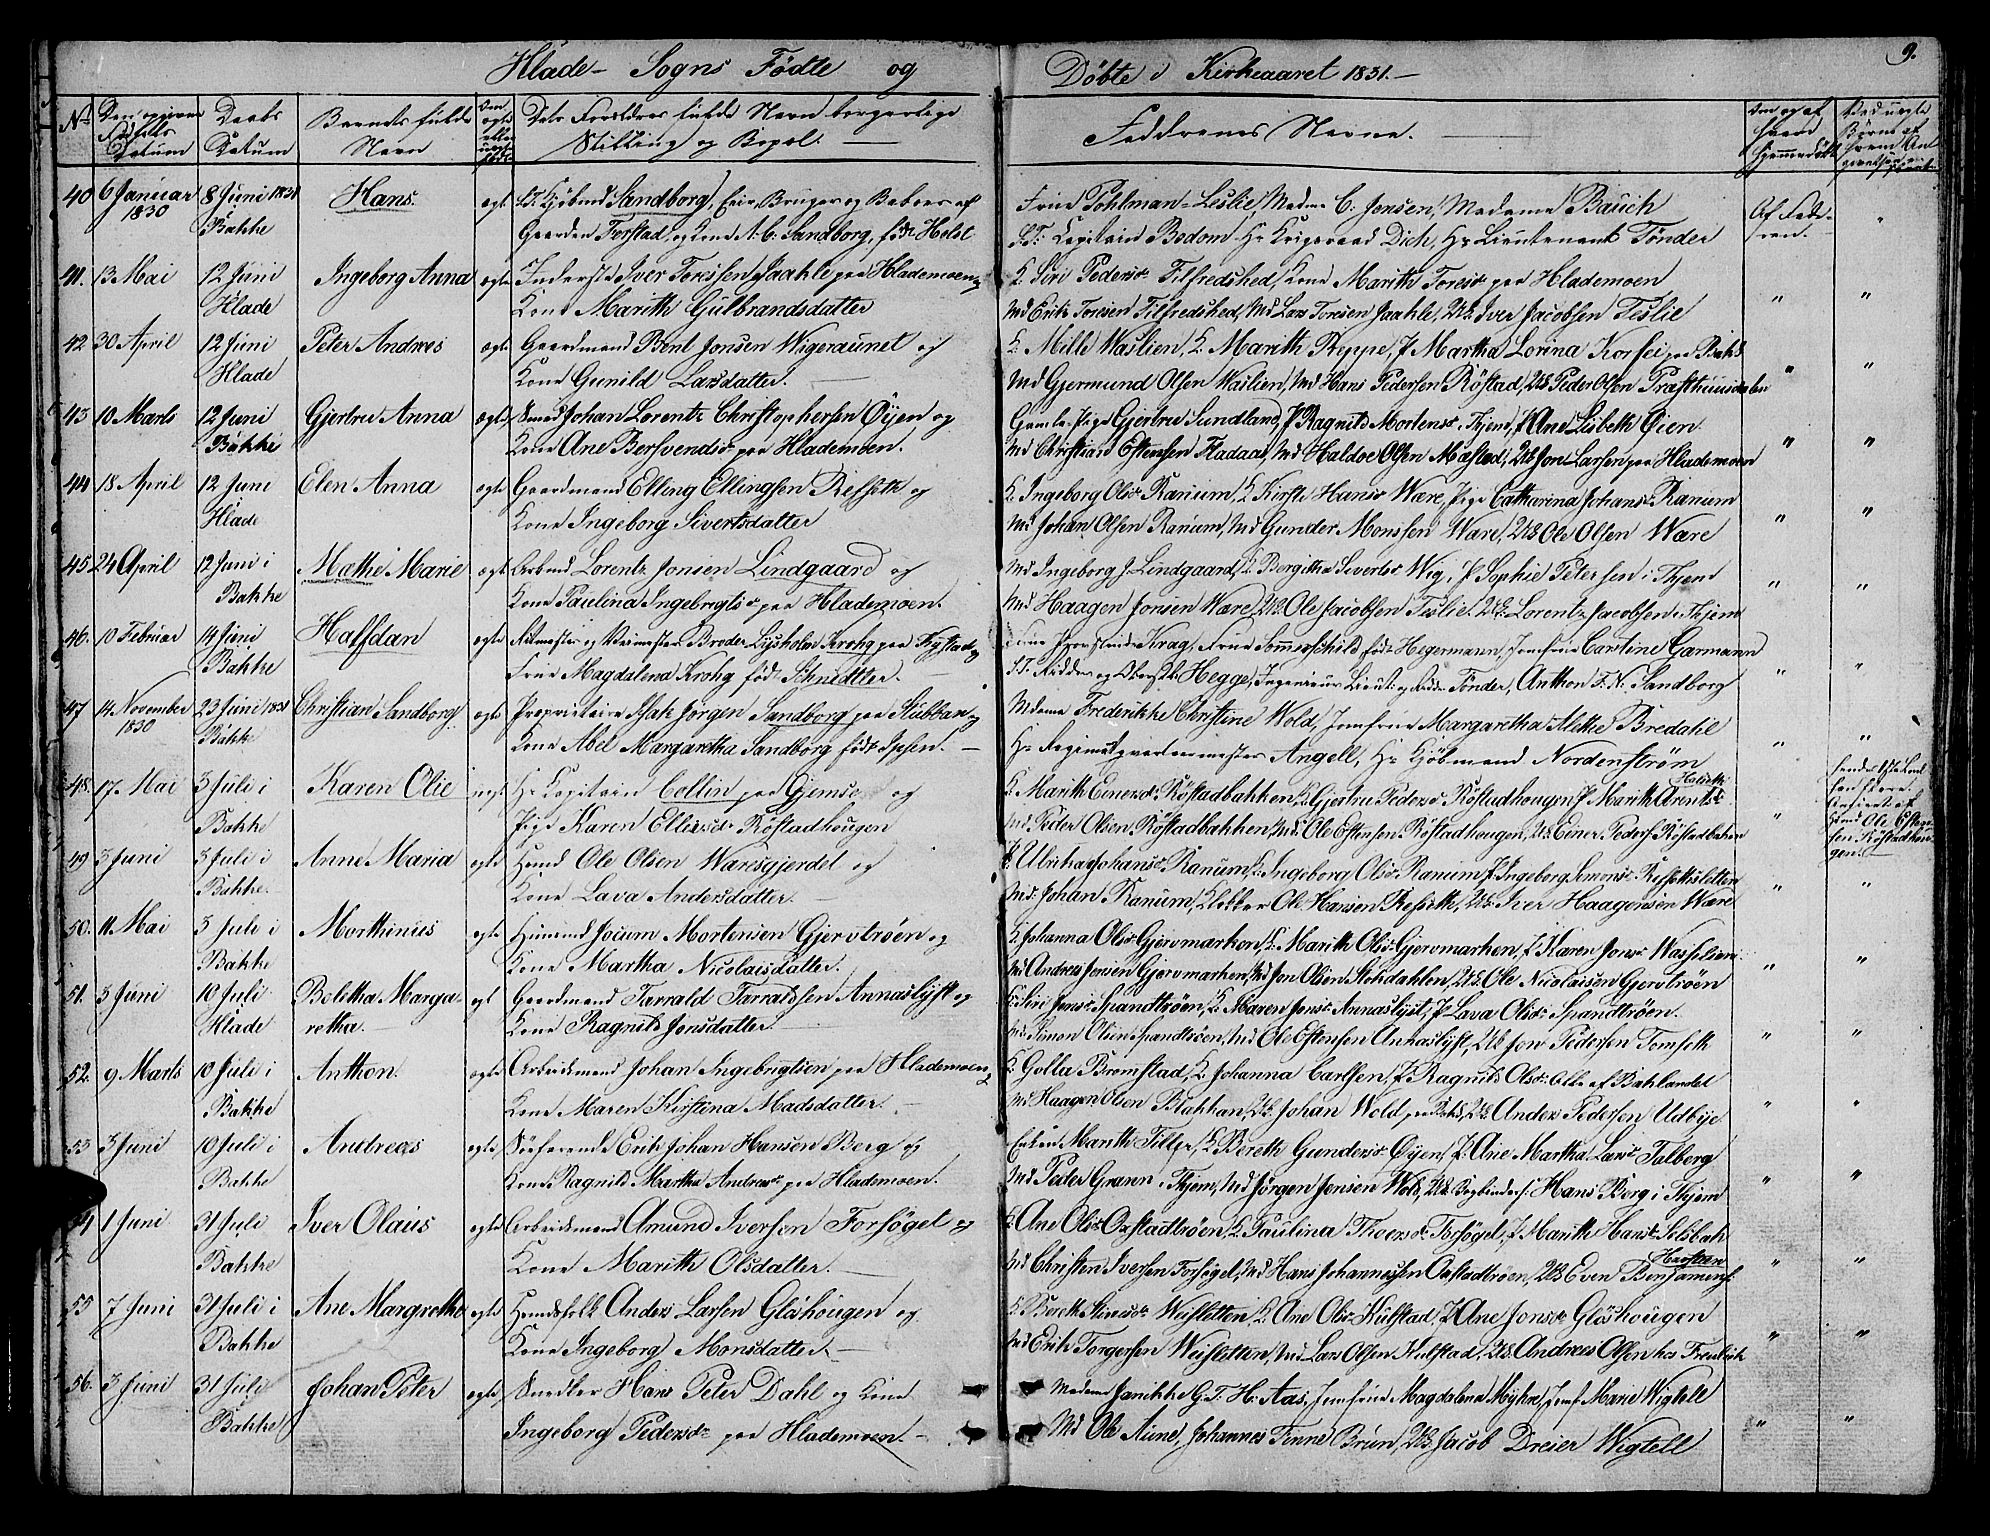 9.
Hlade- Sogns Fødte og Døbte i Kirkeaaret 1831.-
No Den opgivne Fødsels Datum
Daabs Datum
Barnets fulde Navn
Det Forældres fulde Navn borgerlige Stilling og Bopæl.
Faddrenes Navne.
40 6 Januar 1830 8 Juni 1831 Bakke Hans. ægte Sandborg, Eier, Bruger og Beboer af
Gaarden Ferstad, og Kone A. C. Sandborg, født Holst
Frue Pohlman Leslie, Madme C. Jensen, Madame Bauch
Capitain Bodom, Hr Krigsraad Dich, Hr Lieutenant Tønder
41. 13 Mai 12 Juni Hlade Ingeborg Anna ægte Inderste Iver Toresen Jaahle paa Hlademoen og
Kone Marith Gulbrandsdatter
K. Siri Pedersdr Tilfredshed, Kone Marith Toresdr paa Hlademoen
Md Erik Toresen Tilfredshed, Md Lars Toresen Jaahle, Uk. Iver Jacobsen Teslie
42 30 April 12 Juni Hlade Peter Andreas ægte Gaardmand Bent Jonsen Wigeraunet og
Kone Gunild Larsdatter.
K. Mille Waslien, K. Marith Reppe, P Martha Lorina Korsei paa Bakl.
Md Gjermund Olsen Waslien, Md Hans Pedersen Røstad, Uk Peder Olsen Præsthuusdalen
43 10 Marts 12 Juni Bakke Gjertru Anna ægte Smed Johan Lorentz Christophersen Øyen og
Kone Ane Bersvendsdr paa Hlademoen.
Gamle Pige Gjertru Sundland, P Ragnild Mortensdr i Thjem, P Ane Lisbeth Øien.
Md Christian Estensen Fladaas, Md Haldoe Olsen Mæstad, Uk Jon Larsen paa Hlademoen
44 18 April 12 Juni Hlade Elen Anna ægte Gaardmand Elling Ellingsen Refseth og
Kone Ingeborg Sivertsdatter
K. Ingeborg Olsdr Ranum, K Kirsti Hansdr Være, Pige Catharina Johansdr Ranum
Md Johan Olsen Ranum, Md Gunder Monssen Være, Uk Ole Olsen Være
45 24 April 12 Juni i Bakke Mathe Marie ægte Arbmd Lorentz Jonsen Lindgaard og
Kone Paulina Ingebrgtsdr paa Hlademoen.
Md Ingeborg J. Lindgaard, K. Bergitha Sivertsdr Wig, P Sophie Petersen i Thjem
Md Haagen Jonsen Være, Uk Ole Jacobsen Teslie, Uk. Lorentz Jacobsen i Thjem
46. 10 Februar 14 Juni Bakke Halfdan ægte Ritmester og Veimester Broder Lysholm Krohg paa Frystad og
Frue Magdalena Krohg født Schnidtler.
Frue Provstinde Krag, Frue Sommerschild født Hegermann, Jomfrue Caroline Garmann
Ridder og Oberst Hegge, Ingenieur Lieut: og Tønder, Anthon F. N. Sandborg
47 14 November 1830 23 Juni 1831 Bakke Christian Sandborg. ægte Proprietaire Isak Jørgen Sandborg paa Stubban og
Kone Abel Margaretha Sandborg født Ipsen.
Madame Frederikke Christine Wold, Jomfrue Margaretha Mette Bredahl
Hr Regimentsqvarteermester Angell, Hr Kjøbmand Nordenstrøm
48. 17 Mai 3 Juli i Bakke Karen Olie uegte Hr Capitain Collin paa Gjemse og
Pige Karen Ellivsdr Røstadhougen
K. Marith Einersdr Røstadbakken, K Gjertru Pedersdr Røstadhougen, P Marith Arentsdr
Md Peder Olsen Røstadbakken, Md Ole Estensen Røstadhougen, Uk Einer Peders: Røstadbaken
Ole Estensen Røstadhougen.
49 3 Juni 3 Juli i Bakke. Anne Maria ægte Huusmd Ole Olsen Waresgjerdet og
Kone Lava Andersdatter.
P Ulricha Johansdr Ranum, K. Ingeborg Olsdr Ranum, P. Ingeborg Simonsdr Refsethsletten
Md Johan Ranum, Klokker Ole Hansen Refseth, Uk. Iver Haagensen Være
50. 11 Mai 3 Juli i Bakke Morthinus ægte Huusmd Jocum Mortensen Gjervtrøen og
Kone Martha Nicolaisdatter.
K. Johanna Olsdr Gjervmarken, K. Marith Olsdr Gjervmarken, P Karen Jonsdr Wassslien.
Md Andreas Jensen Gjervmarken, Md Jon Olsen Stokdahlen, Uk. Ole Nicolaisen Gjervtrøen
51. 3 Juni 10 Juli Hlade Beletha Margaretha. ægt Gaardmand Tarrald Tarraldsen Annaslyst og
Kone Ragnild Jonsdatter.
K. Siri Jensdr Spandtrøen, K. Maren Jonsdr Annaslyst, P. Lava Olsdr Spandtrøen.
Md Simon Olsen Spandtrøen, Md Ole Estensen Annaslyst, Uk Jon Pedersen Tomseth
52. 9 Marts 10 Juli i Bakke Anthon. ægte Arbeidsmand Johan Ingebrigtsen paa Hlademoen og
Kone Maren Kirstina Madsdatter.
K. Golla Bromstad, K. Johanna Carlsen, P Ragnild Olsdr Alle af Baklandet
Md Haagen Olsen Blakkan, Uk. Johan Wold paa Bakl, Uk Anders Pedersen Udbye
53 3 Juni 10 Juli i Bakke Andreas ægte Søefarende Erik Johan Hansen Berg og
Kone Ragnild Martha Andreasdr paa Hlademoen.
Enken Marith Tiller, K Bereth Gundersdr Øyen, P. Ane Martha Larsdr Talberg
Md Peder Grann i Thjem, Md Jørgen Jensen Wold, Uk Bogbinders: Hans Berg i Thjem
54 1 Juni 31 Juli Bakke Iver Olaus ægte Arbeidsmand Amund Iversen Forsøget og
Kone Marith Olsdatter.
K: Ane Olsdr Oxstadtrøen, K. Paulina Thoersdr Forsøget, P Marith Hansdr Solsbak
Md Christen Iversen Forsøget, Md Hans Johannesen Oxstadtrøen, Uk Even Benjamens:
55 7 Juni 31 Juli i Bakke Ane Margrethe ægte Huusfolk Anders Larsen Gløshougen og
Kone Ingeborg Monsdatter.
K. Bereth Simesdr Weisletten, K. Ane Olsdr Hulstad, P Ane Jonsdr Gløshougen
Md Erik Torgersen Weisletten, Md Lars Olsen Hulstad, Uk. Andreas Olsen hos Frenlich
56. 3 Juni 31 Juli Bakke Johan Peter ægte Snedker Hans Peter Dahl og Kone
Ingeborg Pedersdr paa Hlademoen.
Madame Janikke G. T. H. Aas, Jomfrue Magdalena Myhre, Jomf Marie Wigtell
Md Ole Aune, Johannes Finne Brun, Uk Jacob Dreier Wigtell